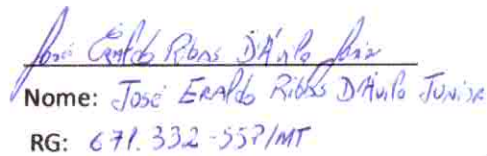 José Eraldo Ribas D'Ávila Júnior
Nome: José Eraldo Ribas D'Ávila Junior
RG: 671.332-SSP/MT